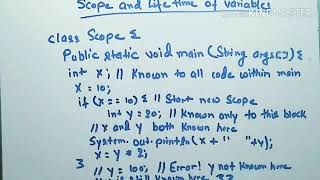 Scope and Life time of variables
MADE WITH
KINEMASTER
class Scope {
Public static void main (String args[]) {
int x; // Known to all code within main
x = 10;
if (x == 10) { // Start new Scope
int y = 20; // Known only to this block
// x and y both known here
System.out.println(x + " "+y);
x = y * 2;
}
// y = 100; // Error! y not known here